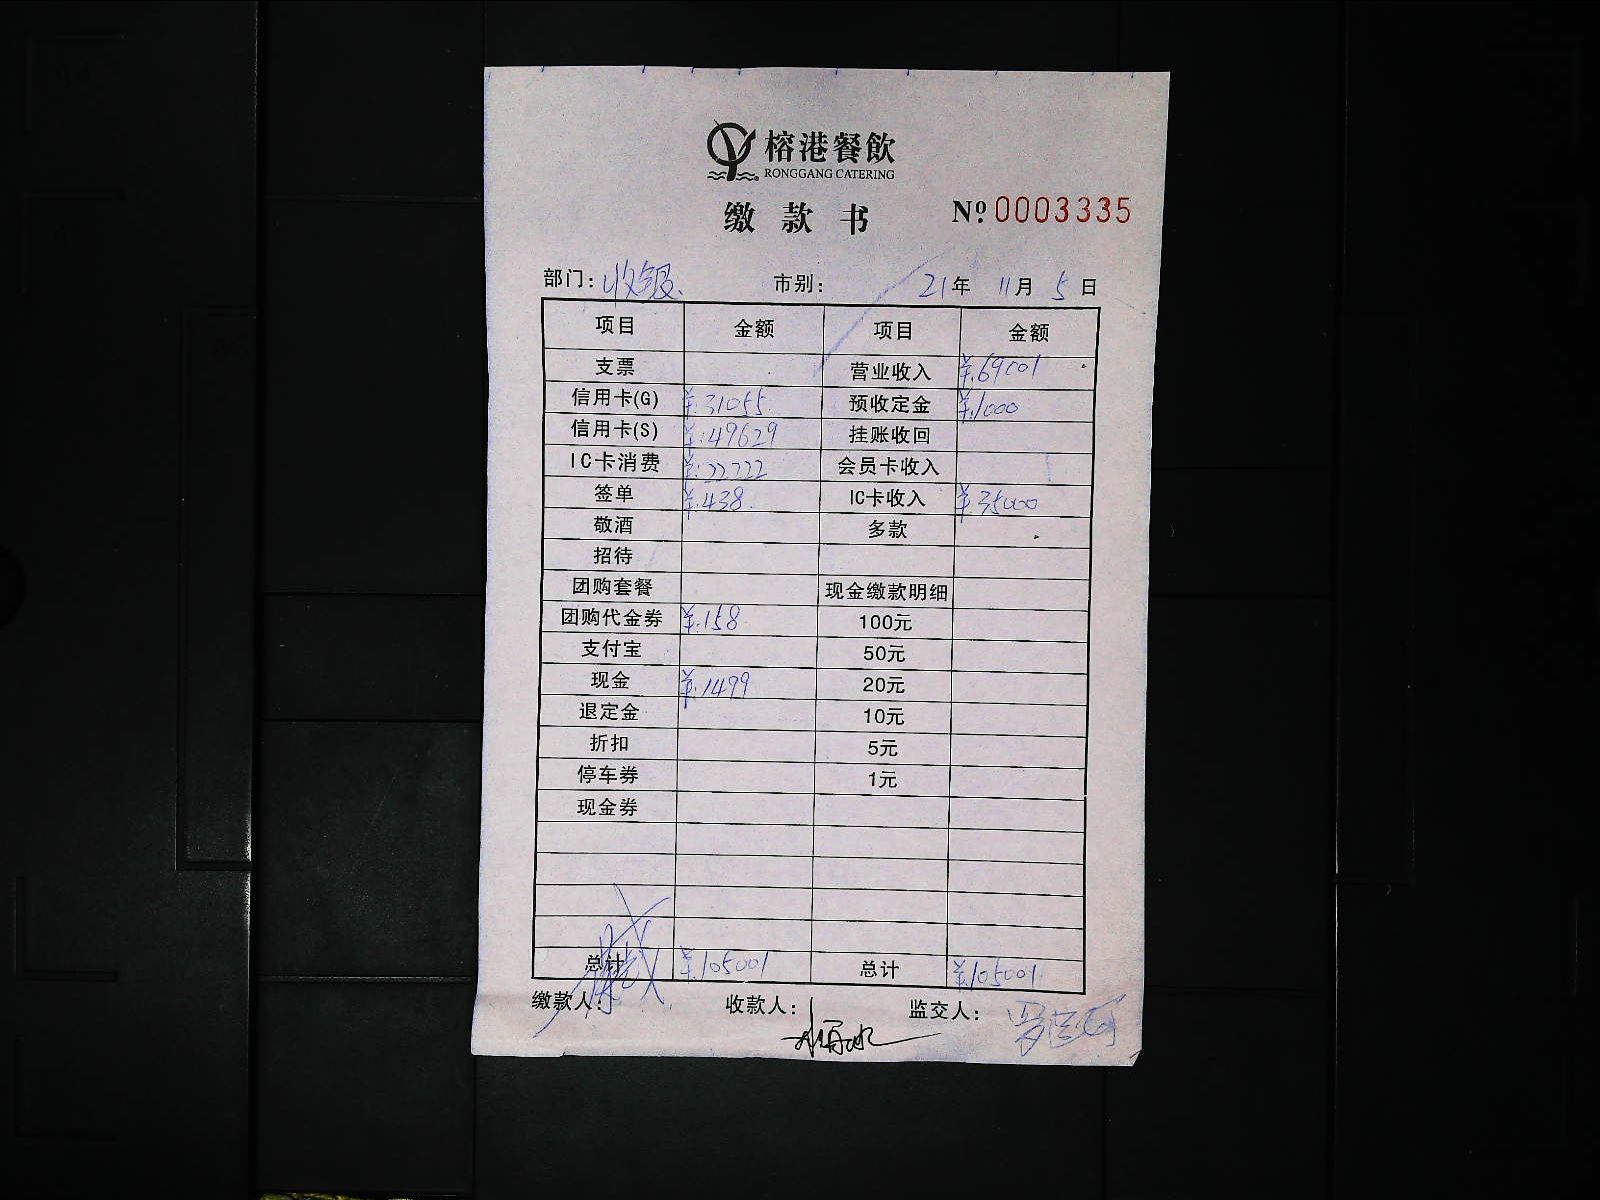 榕港餐飲
RONGGANG CATERING
缴款书 Nº 0003335
部门：收银 市别： 21年 11月 5日
项目 金额 项目 金额
支票 营业收入 ¥:69001
信用卡(G) ¥:31055 预收定金 ¥:1000
信用卡(S) ¥:49629 挂账收回
IC卡消费 ¥:22222 会员卡收入
签单 ¥:438. IC卡收入 ¥:35000
敬酒 多款
招待
团购套餐 现金缴款明细
团购代金券 ¥:158 100元
支付宝 50元
现金 ¥:1499 20元
退定金 10元
折扣 5元
停车券 1元
现金券
总计 ¥:105001 总计 ¥:105001
缴款人： 收款人： 监交人：